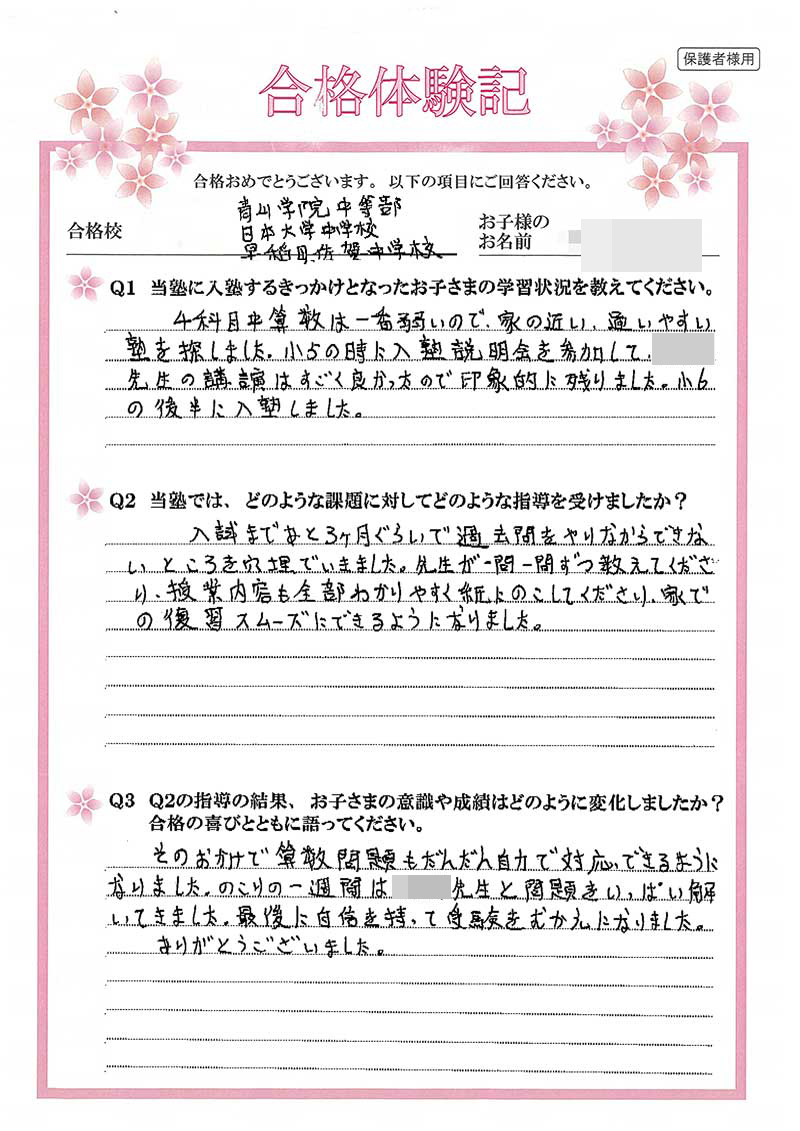 保護者様用
合格体験記
合格おめでとうございます。以下の項目にご回答ください。
合格校
青山学院中等部
日本大学中学校
早稲田佐賀中学校
お子様の
お名前
Q1 当塾に入塾するきっかけとなったお子さまの学習状況を教えてください。
4科目中算数は一番弱いので、家の近い、通いやすい
塾を探しました。小5の時に入塾説明会を参加して、
先生の講演はすごく良かったので印象的に残りました。小6
の後半に入塾しました。
Q2 当塾では、どのような課題に対してどのような指導を受けましたか？
入試まであと3ヶ月ぐらいで過去問をやりながらできな
いところを穴埋でいきました。先生が一問一問ずつ教えてくださ
り、授業内容も全部わかりやすく紙にのこしてくださり、家で
の復習スムーズにできるようになりました。
Q3 Q2の指導の結果、お子さまの意識や成績はどのように変化しましたか？
合格の喜びとともに語ってください。
そのおかげで算数問題もだんだん自力で対応できるように
なりました。のこりの一週間は先生と問題をいっぱい解
いてきました。最後に自信を持って受験をむかえになりました。
ありがとうございました。